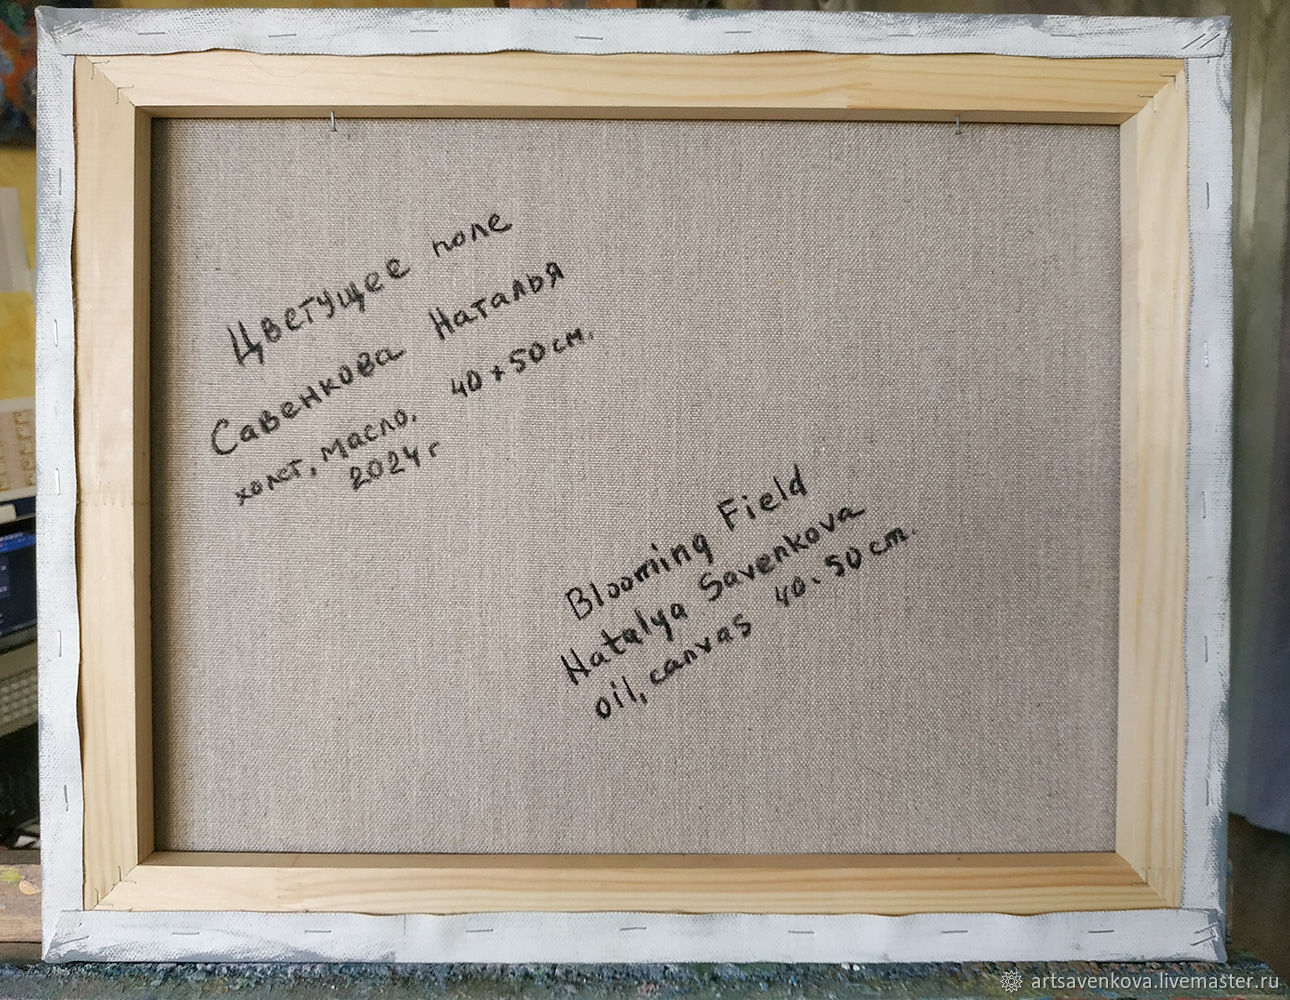 Цветущее поле
Савенкова Наталья
холст, масло. 40 × 50 см.
2024 г
Blooming Field
Natalya Savenkova
oil, canvas 40 · 50 cm.
artsavenkova.livemaster.ru